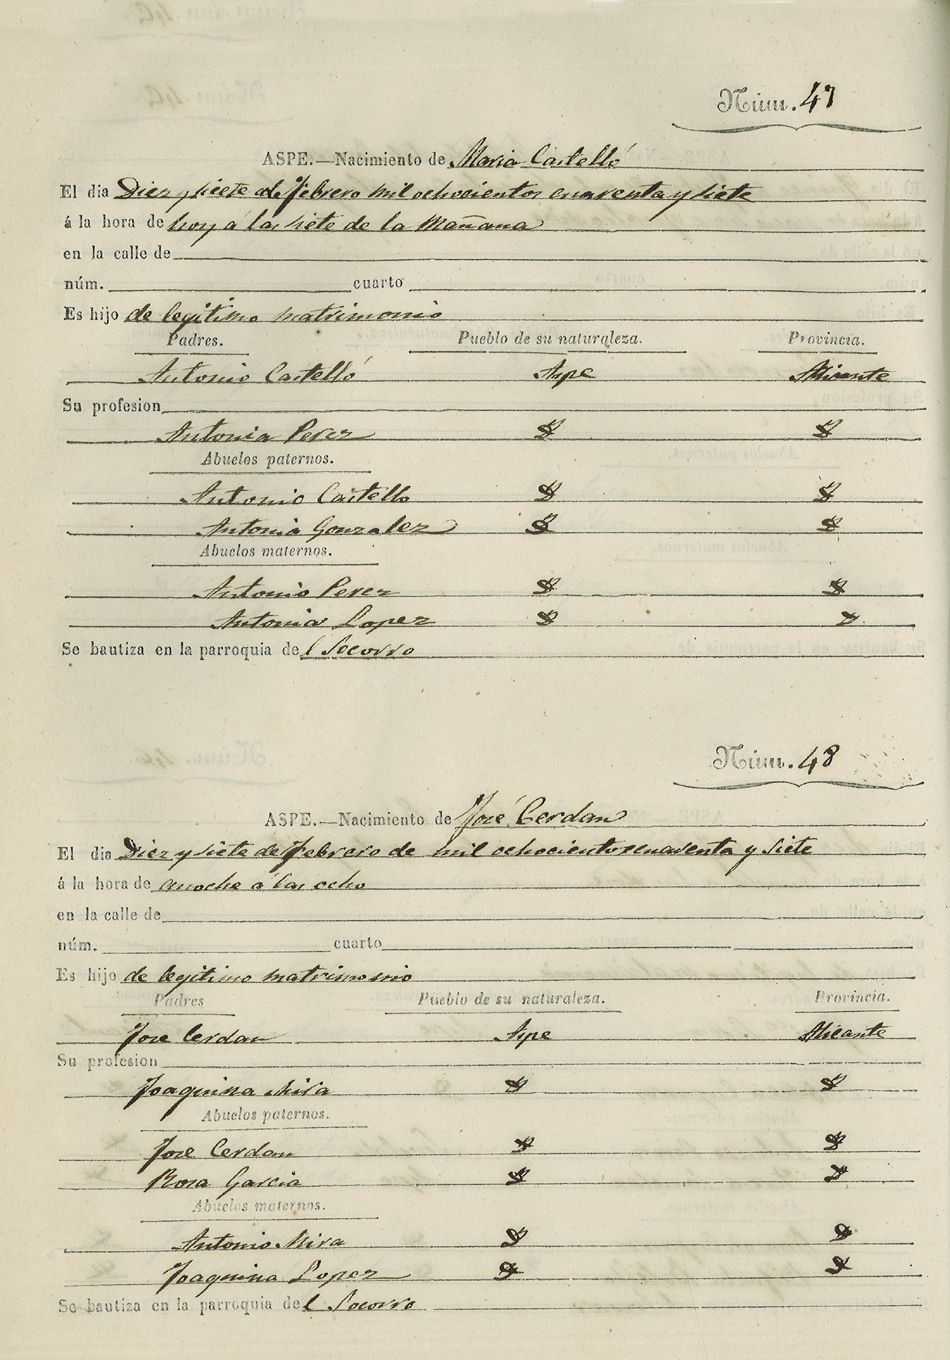 Núm. 47
ASPE.—Nacimiento de Maria Castelló
El dia Diez y siete de Febrero mil ochocientos cuaventa y siete
á la hora de hoy á las siete de la Mañana
en la calle de
núm. cuarto
Es hijo de legitimo matrimonio
Padres. Pueblo de su naturaleza. Provincia.
Antonio Castelló Aspe Alicante
Su profesion
Antonia Perez
Abuelos paternos.
Antonio Castello
Antonia Gonzalez
Abuelos maternos.
Antonio Perez
Antonia Lopez
Se bautiza en la parroquia del Socorro
Núm. 48
ASPE.—Nacimiento de José Cerdan
El dia Diez y siete de Febrero de mil ochocientos cuaventa y siete
á la hora de anoche á las ocho
en la calle de
núm. cuarto
Es hijo de legitimo matrimonio
Padres Pueblo de su naturaleza. Provincia.
Jose Cerdan Aspe Alicante
Su profesion
Joaquina Mira
Abuelos paternos.
Jose Cerdan
Rosa Garcia
Abuelos maternos.
Antonio Mira
Joaquina Lopez
Se bautiza en la parroquia del Socorro